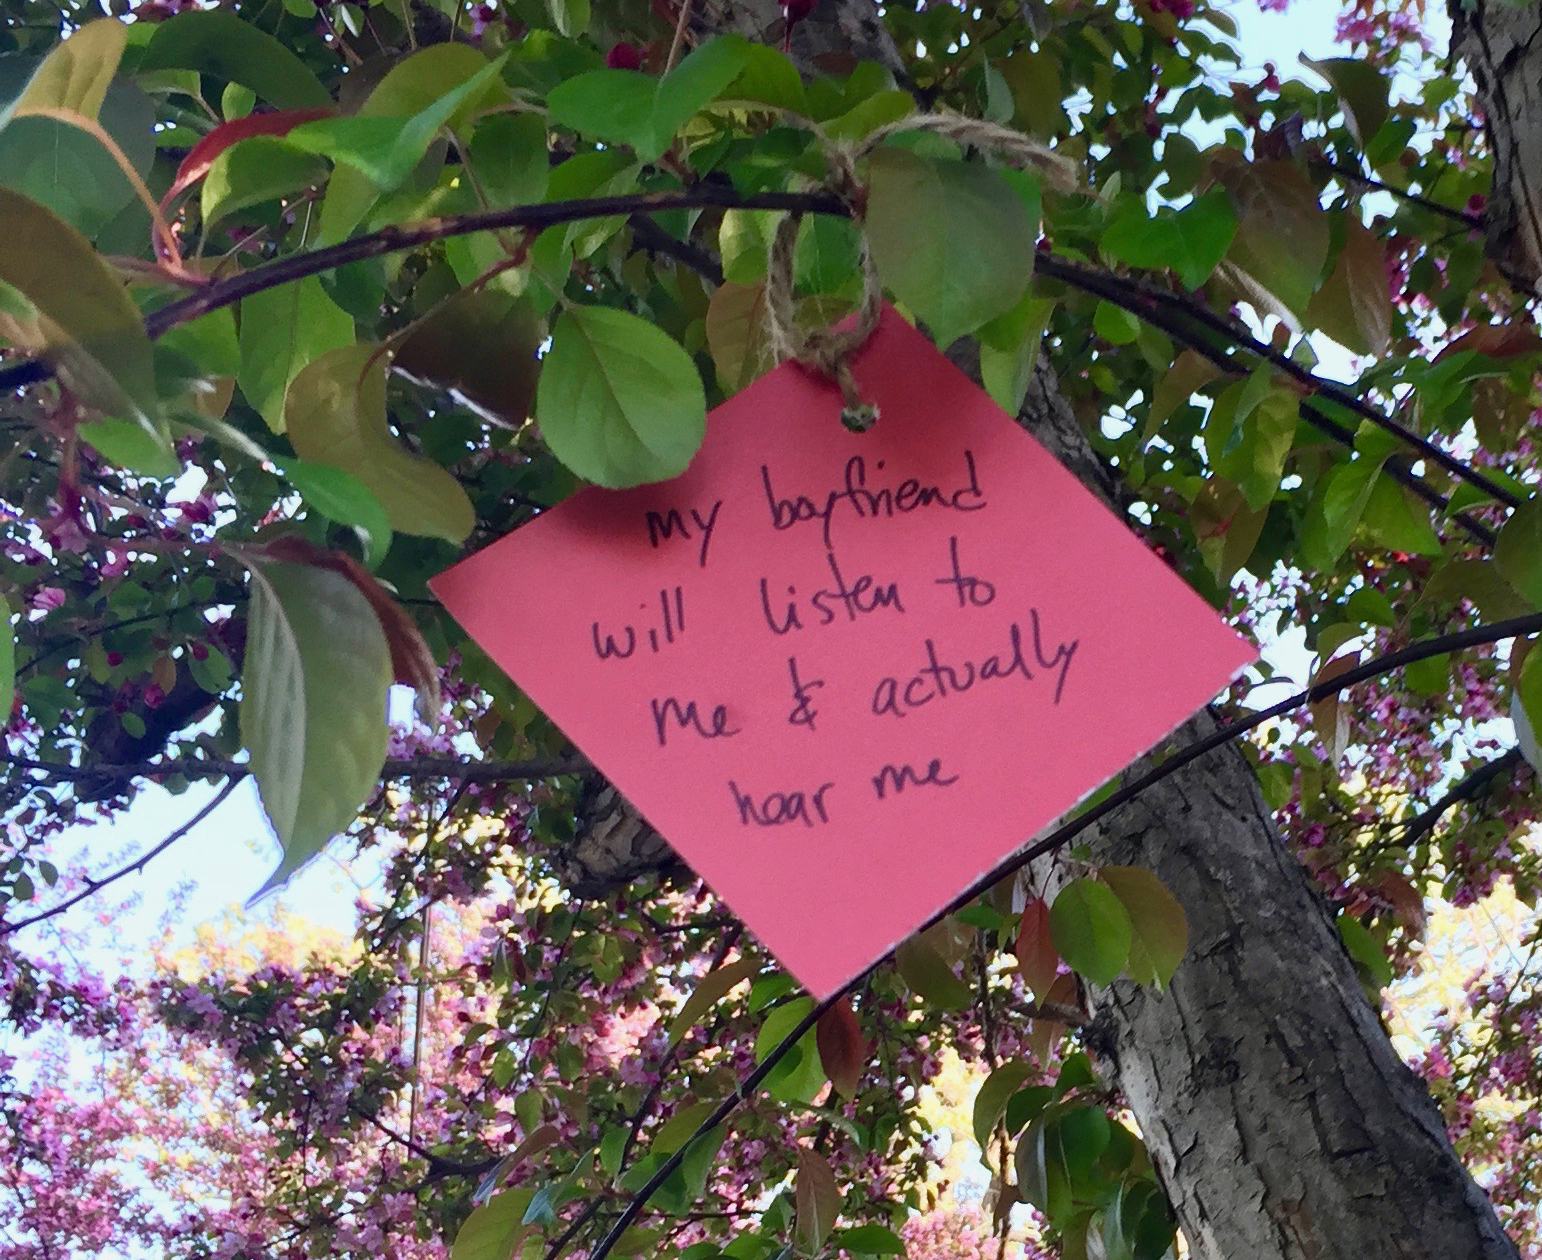 my boyfriend
will listen to
me & actually
hear me